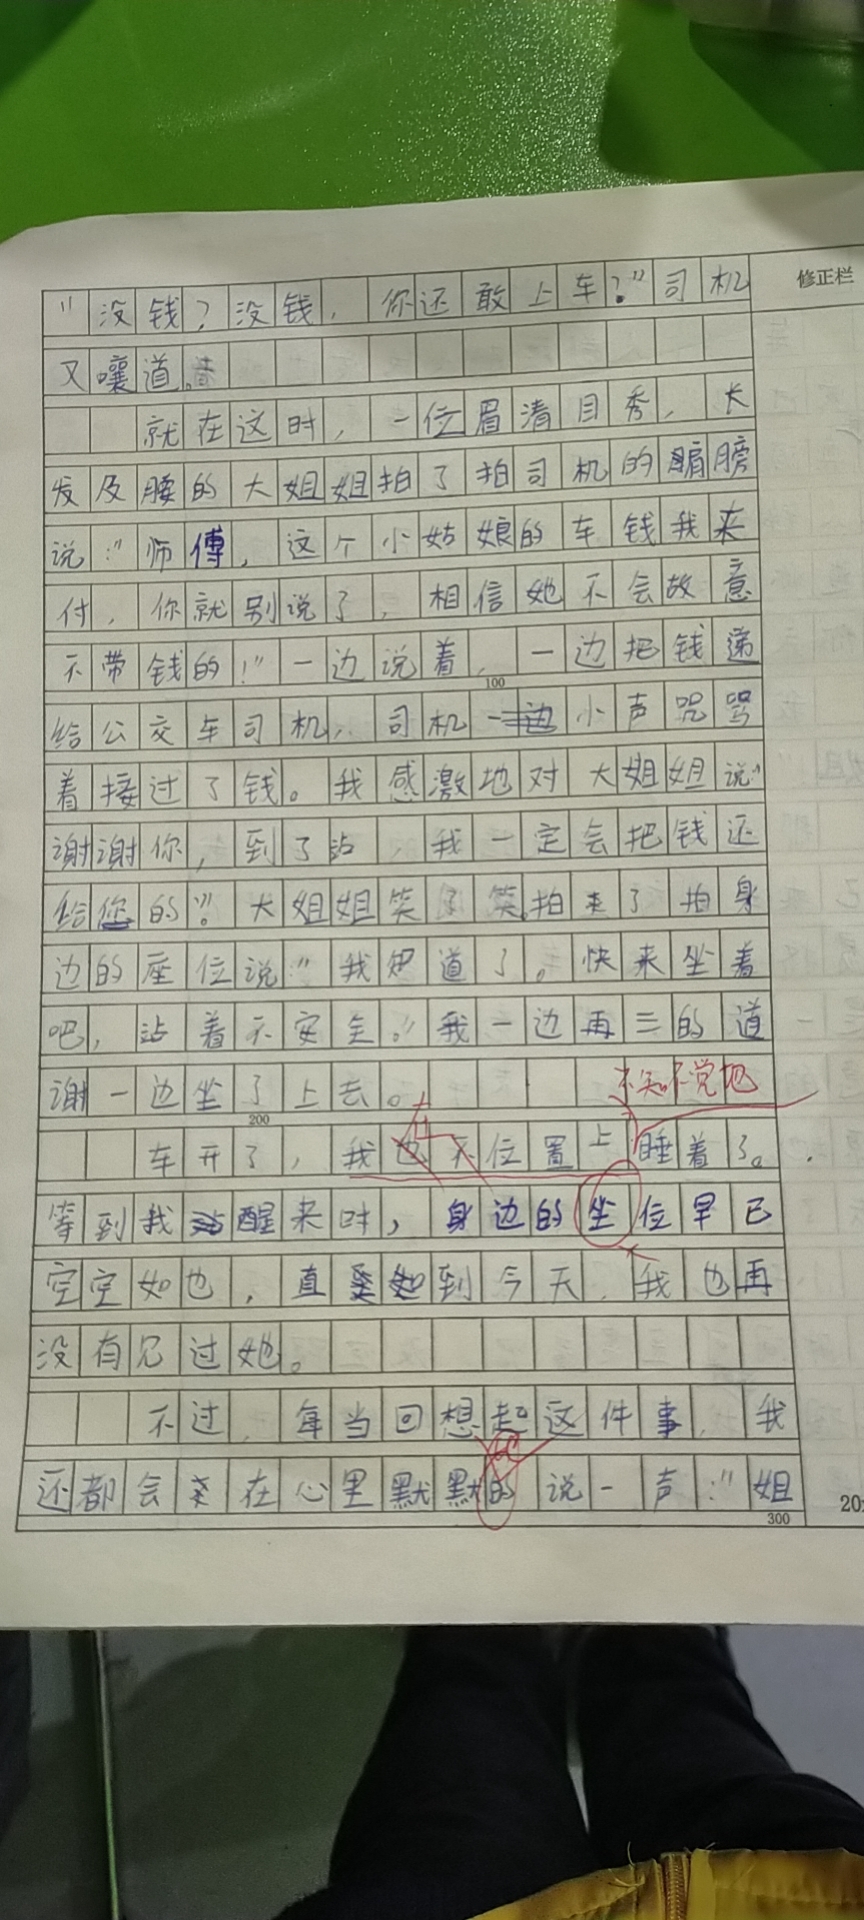 修正栏
“没钱？没钱，你还敢上车？”司机
又嚷道。
就在这时，一位眉清目秀，长
发及腰的大姐姐拍了拍司机的肩膀
说：“师傅，这个小姑娘的车钱我来
付，你就别说了，相信她不会故意
不带钱的！”一边说着，一边把钱递
100
给公交车司机，司机一边小声咒骂
着接过了钱。我感激地对大姐姐说“
谢谢你，到了站，我一定会把钱还
给您的”。大姐姐笑了笑，拍来了拍身
边的座位说：“我知道了。快来坐着
吧，站着不安全。”我一边再三的道
谢一边坐了上去。
不知不觉地
200
在
车开了，我也不位置上睡着了。
等到我醒来时，身边的坐位早已
空空如也，直到今天，我也再
没有见过她。
不过，每当回想起这件事，我
还都会来在心里默默的说一声：“姐
地
300